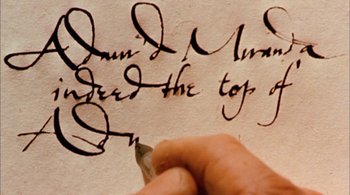 Admir'd Miranda
indeed the top of
Adm